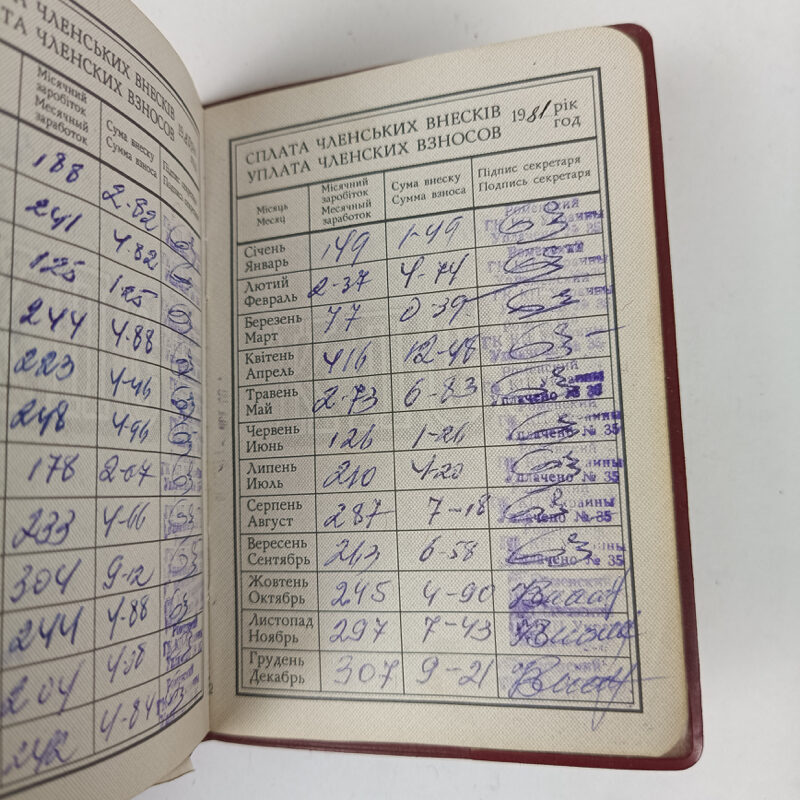 А ЧЛЕНСЬКИХ ВНЕСКІВ
ТА ЧЛЕНСКИХ ВЗНОСОВ
Місячний заробіток
Месячный заработок
Сума внеску
Сумма взноса
188 2-82
241 4-82
125 1-25
244 4-88
223 4-46
248 4-96
178 2-67
233 4-66
304 9-12
244 4-88
204 4-08
242 4-84
СПЛАТА ЧЛЕНСЬКИХ ВНЕСКІВ 1981 рік
УПЛАТА ЧЛЕНСКИХ ВЗНОСОВ год
Місяць
Месяц
Місячний заробіток
Месячный заработок
Сума внеску
Сумма взноса
Підпис секретаря
Подпись секретаря
Січень
Январь 149 1-49
Лютий
Февраль 2-37 4-74
Березень
Март 77 0-39
Квітень
Апрель 416 12-48
Травень
Май 2-73 6-83
Червень
Июнь 126 1-26
Уплачено № 35
Липень
Июль 210 4-20
Уплачено № 35
Серпень
Август 287 7-18
Уплачено № 35
Вересень
Сентябрь 263 6-58
Уплачено № 35
Жовтень
Октябрь 245 4-90
Листопад
Ноябрь 297 7-43
Грудень
Декабрь 307 9-21